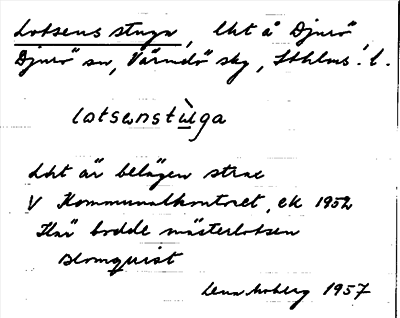 Lotsens stuga, lht å Djurö
Djurö sn, Värmdö skg, Sthlms l.
lotsənstù̲ga
Lht är belägen strax
V Kommunalkontoret, ek 1952
Här bodde mästerlotsen
Blomquist
Lena Moberg 1957